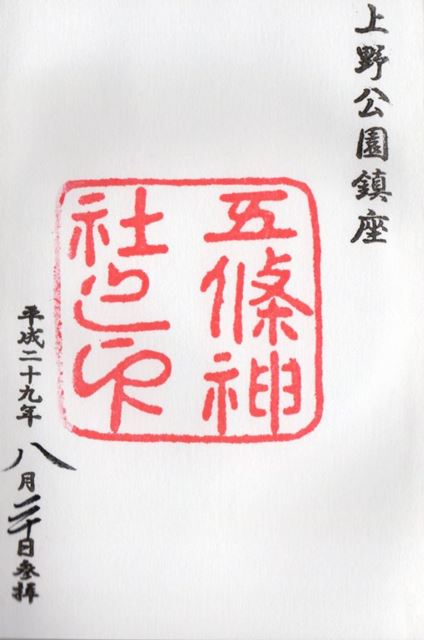 上野公園鎮座
五條神
社之印
平成二十九年八月二十日参拝